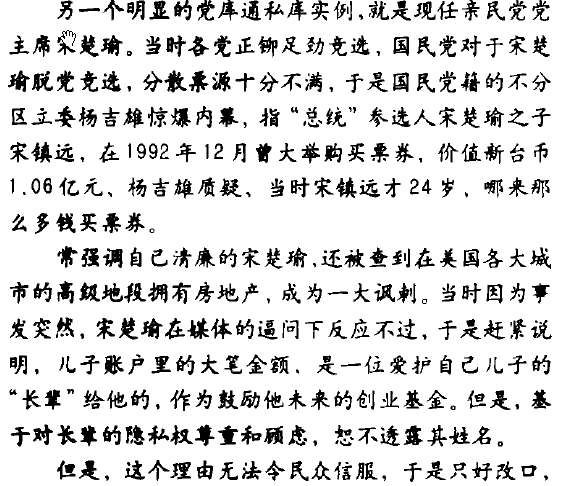 另一个明显的党库通私库实例,就是现任亲民党党
主席宋楚瑜。当时各党正铆足劲竞选，国民党对于宋楚
瑜脱党竞选，分散票源十分不满，于是国民党籍的不分
区立委杨吉雄惊爆内幕，指“总统”参选人宋楚瑜之子
宋镇远，在1992年12月曾大举购买票券，价值新台币
1.06亿元、杨吉雄质疑、当时宋镇远才24岁，哪来那
么多钱买票券。
常强调自己清廉的宋楚瑜,还被查到在美国各大城
市的高级地段拥有房地产，成为一大讽刺。当时因为事
发突然，宋楚瑜在媒体的逼问下反应不过，于是赶紧说
明，儿子账户里的大笔金额，是一位爱护自己儿子的
“长辈”给他的，作为鼓励他未来的创业基金。但是，基
于对长辈的隐私权尊重和顾虑，恕不透露其姓名。
但是，这个理由无法令民众信服，于是只好改口，